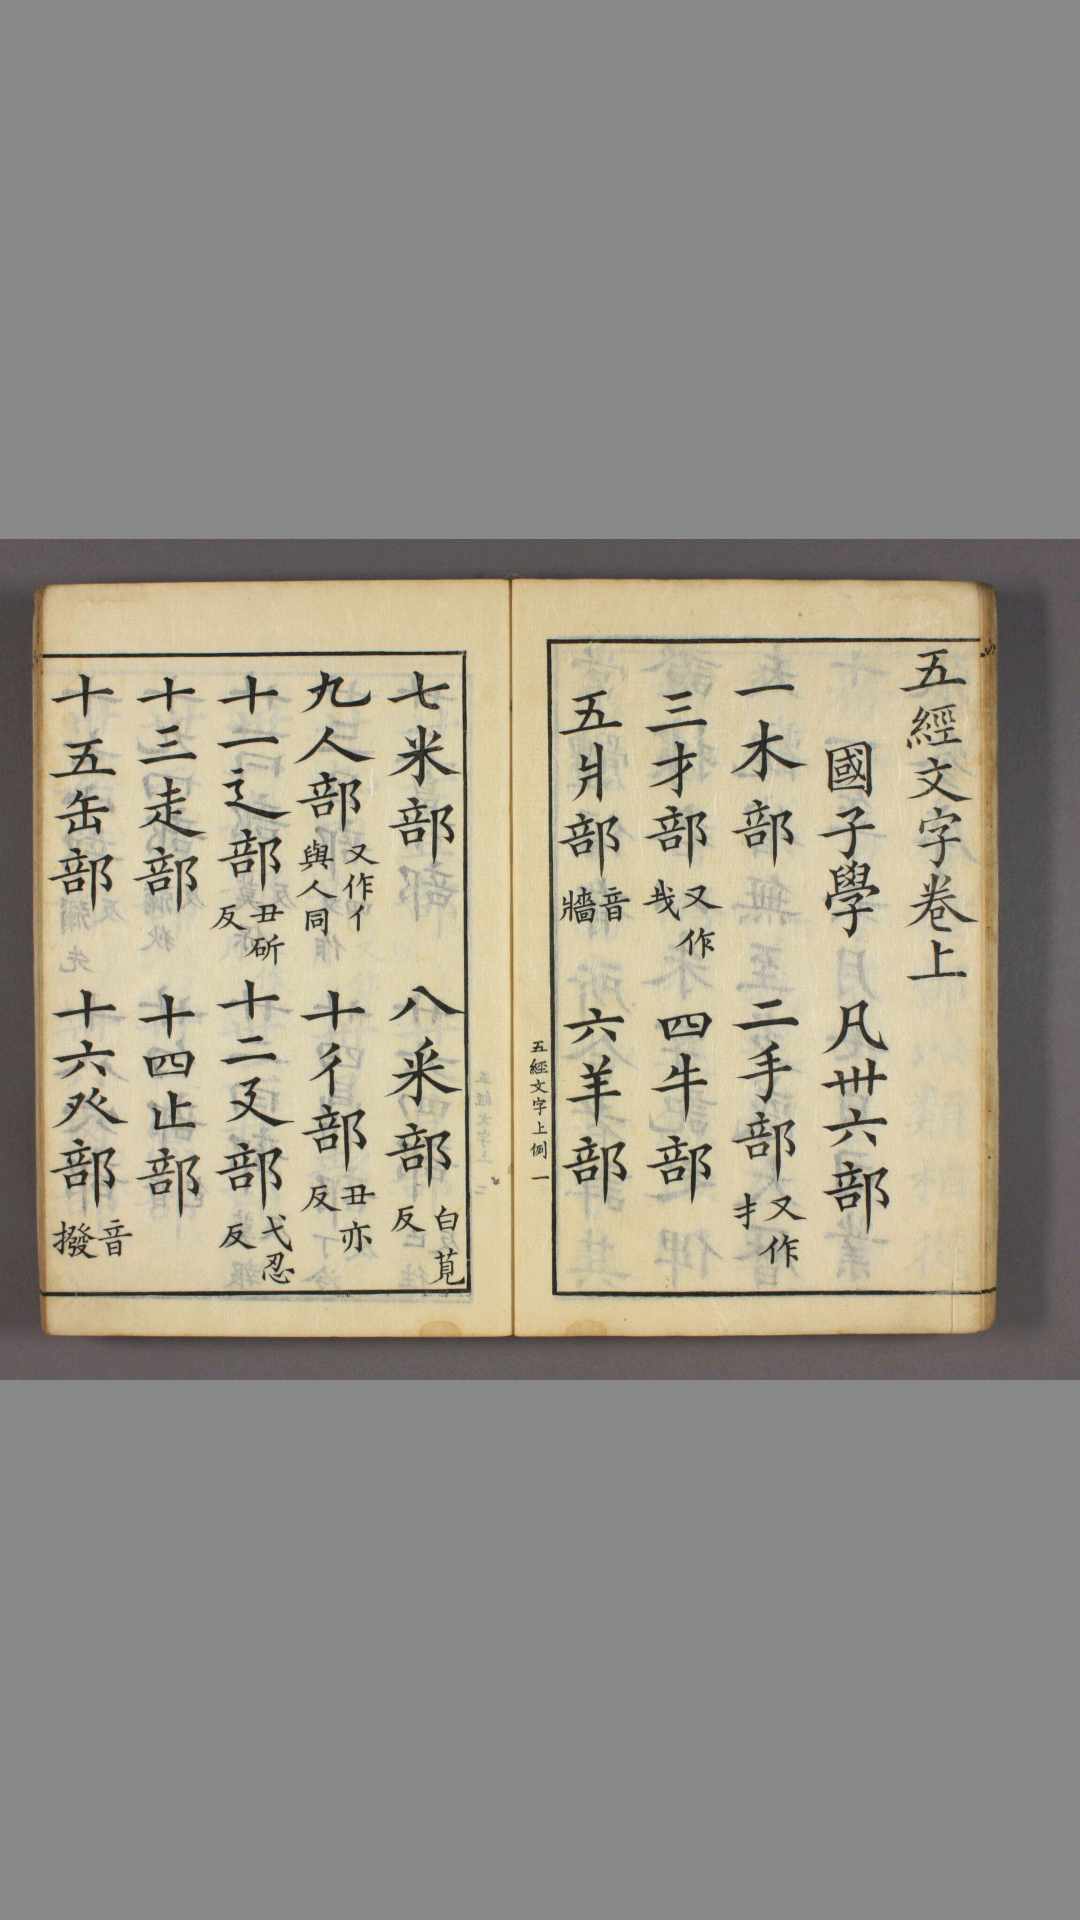 五經文字卷上
國子學 凡卅六部
一木部 二手部又作扌
三才部又作𢦏 四牛部
五爿部音牆 六羊部
五經文字上例 一
七米部 八釆部白莧反
九人部又作亻與人同 十彳部丑亦反
十一辵部丑斫反 十二廴部弋忍反
十三走部 十四止部
十五缶部 十六癶部音撥